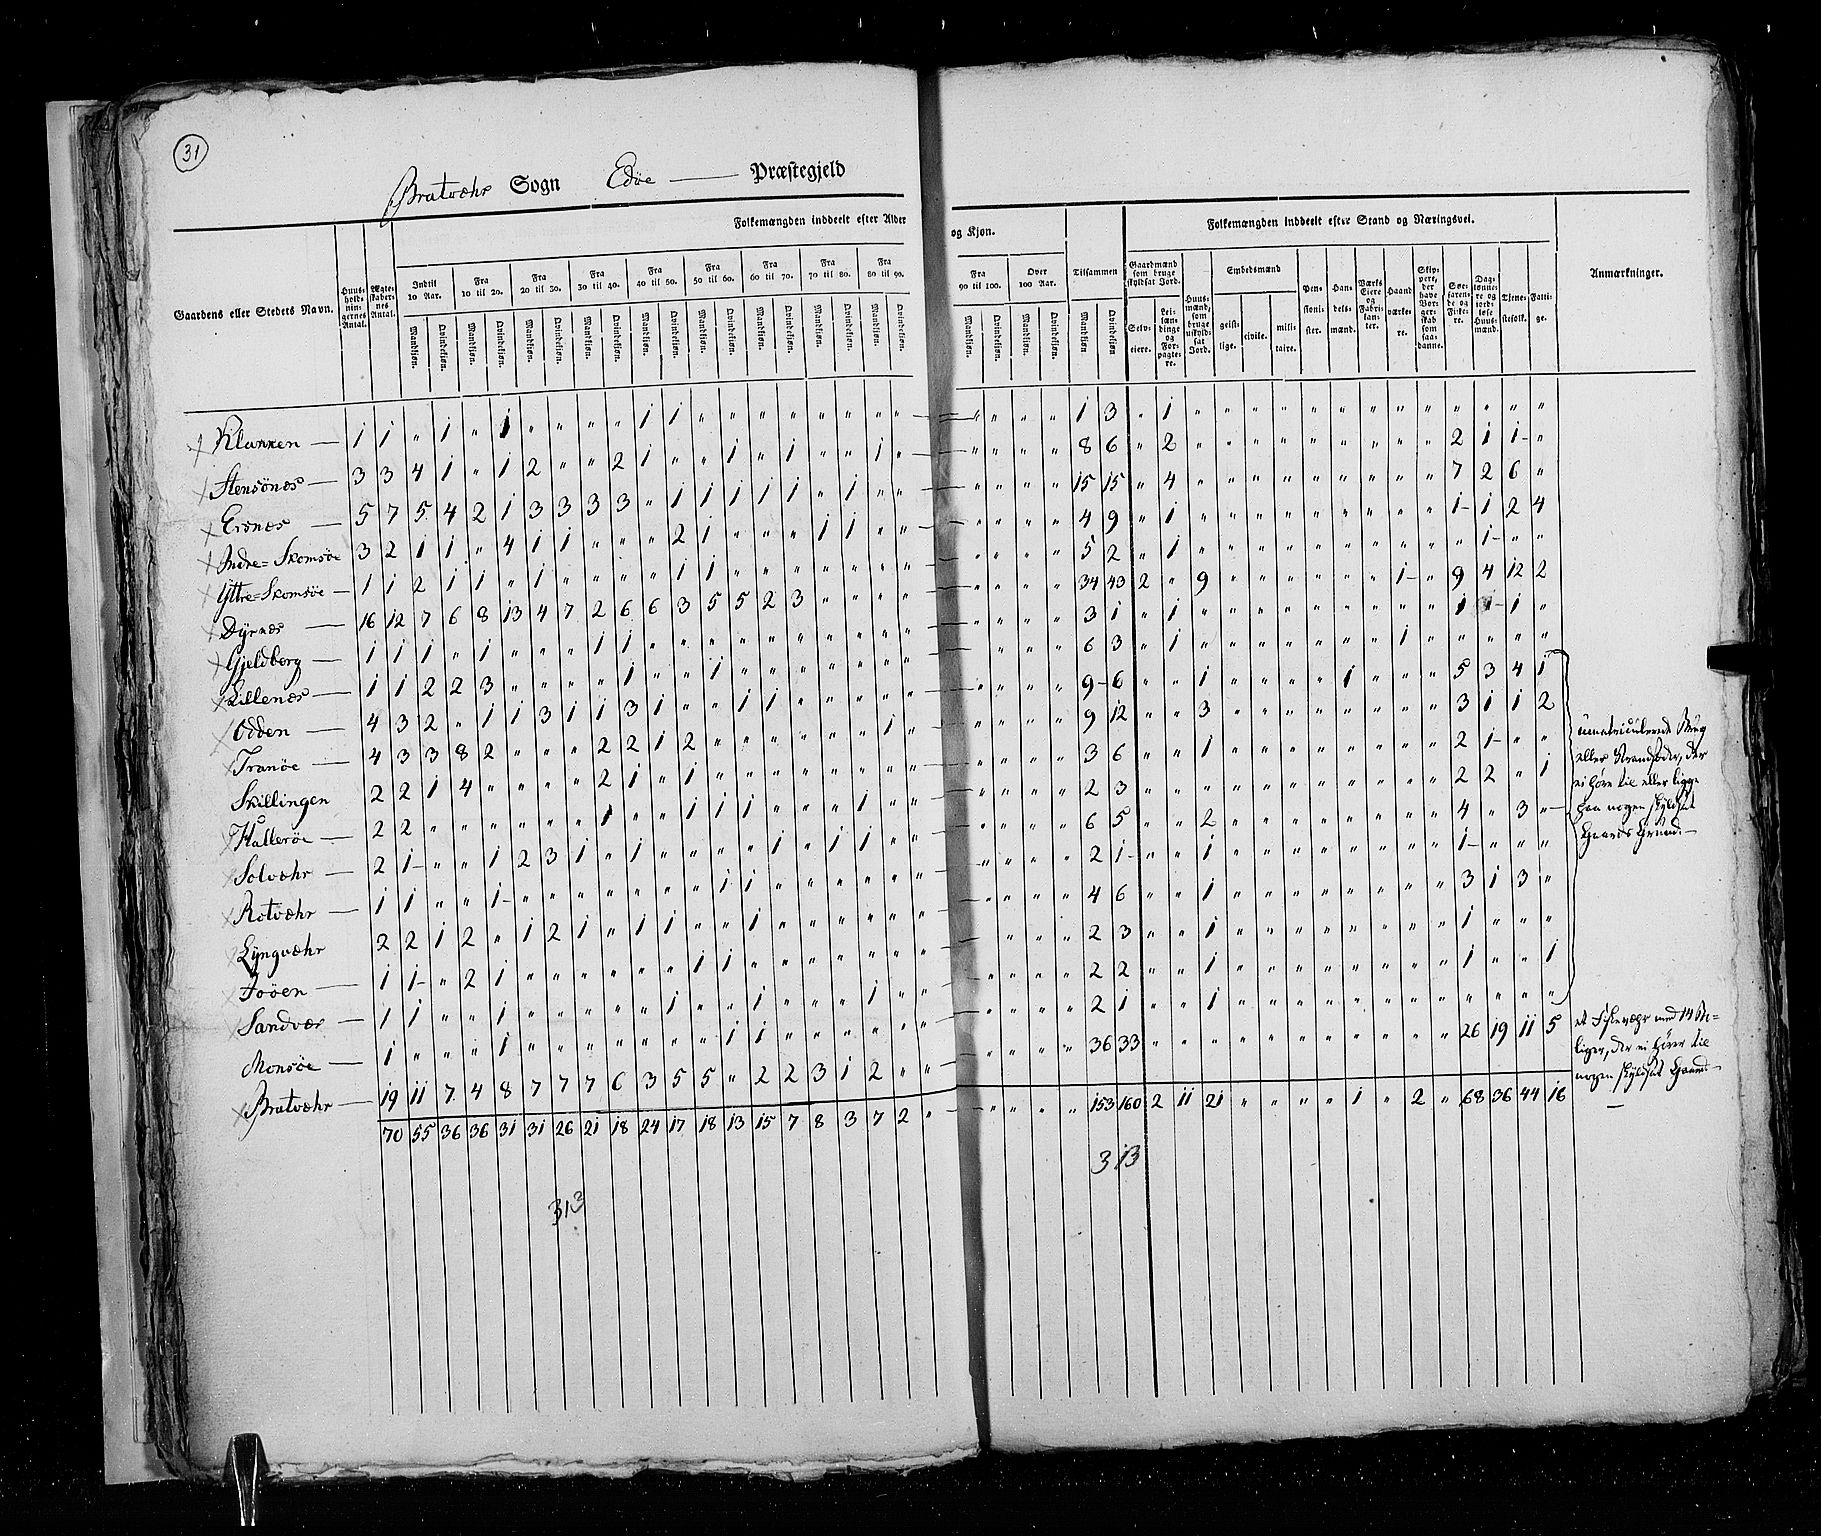 31
Bratvæhr Sogn Edøe — Præstegjeld
Folkemængden inddeelt efter Alder og Kjøn.
Folkemængden inddeelt efter Stand og Næringsvei.
Gaardens eller Steders Navn.
Huusholdningernes Antal.
Ægteskabernes Antal.
Indtil 10 Aar.
Fra 10 til 20.
Fra 20 til 30.
Fra 30 til 40.
Fra 40 til 50.
Fra 50 til 60.
Fra 60 til 70.
Fra 70 til 80.
Fra 80 til 90.
Fra 90 til 100.
Over 100 Aar.
Tilsammen
Mandkjøn. Qvindekjøn.
Gaardmænd som bruge skyldsat Jord.
Selveiere.
Leilændinge og Forpagtere.
Huusmænd, som bruge uskyldsat Jord.
Embedsmænd
geistlige. civile. militaire.
Pensionister.
Handelsmænd.
Værks Eiere og Fabrikanter.
Haandværkere.
Skippere, der have Borgerskab som saadanne.
Søefarende og Fiskere.
Daglønnere og jordløse Huusmænd.
Tjenestefolk.
Fattige.
Anmærkninger.
Klakken — 1 1 " 1 " 1 " " " " 1 1 " " " " " " " " — " " " " 1 3 " 1 " " " " " " " " " " " " "
Stensönes — 3 3 4 1 " 1 2 " " 2 1 " " 1 " 1 " " 1 " — " " " " 8 6 " 2 " " " " " " " " " 2 1 1 "
Ersnæs — 5 7 5 4 2 1 3 3 3 3 " 1 1 1 1 1 " 1 " " — " " " " 15 15 " 4 " " " " " " " " " 7 2 6 "
Indre-Skomsøe 3 2 1 1 " 4 1 1 " " " 2 1 " " " 1 1 " " — " " " " 4 9 " 1 " " " " " " " " " 1 1 2 4
Yttre-Skomsøe — 1 1 2 1 1 " 1 " " " " 1 1 " " " " " " " — " " " " 5 2 " 1 " " " " " " " " " " 1 " "
Dyrnæs — 16 12 7 6 8 13 4 7 2 6 6 3 5 5 2 3 " " " " — " " " " 34 43 2 " 9 " " " " " " 1 " 9 4 12 2
Gjeldberg — 1 1 1 " 1 " " " 1 1 " " " " " " " " " " — " " " " 3 1 " 1 " " " " " " " " " 1 1 1 "
Lillenæs — 1 1 2 2 3 " " " " 1 " " 1 " " " " " " " — " " " " 6 3 " 1 " " " " " " " 1 " " " " "
Odden — 4 3 2 " 1 1 3 1 1 3 1 " " 1 1 " " " " — " " " " 9 6 " " 1 " " " " " 1 " " " 5 3 4 1
Tranöe — 4 3 3 8 2 " " " 2 2 1 2 " " " " " " 1 " — " " " " 9 12 " " 3 " " " " " " " " 3 1 1 2
Skillingen 2 2 1 4 " " " " 2 1 " 1 " " " " " " " " — " " " " 3 6 " " 1 " " " " " " " " 2 1 " "
Hallerøe — 2 2 " " " " " " 1 " " 1 1 1 " " " 1 " " — " " " " 2 3 " " " " " " " " " " " 2 2 " 1
Solvæhr — 2 1 " " 1 2 3 1 " 1 " " " " 1 " 1 1 " " — " " " " 6 5 " " 2 " " " " " " " " 4 " 3 "
Rotvæhr — 1 1 " " 1 " " " " " " " 1 1 " " " " " " — " " " " 2 1 " " 1 " " " " " " " " 1 " " "
Lyngvæhr 2 2 1 2 " 1 2 1 " 1 1 " " 1 " " " " " " — " " " " 4 6 " " 1 " " " " " " " " 3 1 3 "
Joöen — 1 1 " 2 1 " " " " " " 1 1 " " " " " " " — " " " " 2 3 " " 1 " " " " " " " " 1 " " "
Sandvær — 1 1 " " 1 " " " " " 1 " " 1 " " " 1 " " — " " " " 2 2 " " 1 " " " " " " " " 1 " " 1
Monsöe — 1 " " " 1 " " " " " " " 1 1 " " " " " " — " " " " 2 1 " " 1 " " " " " " " " " " " "
Bratvæhr — 19 11 7 4 8 7 7 7 6 3 5 5 " 2 2 3 1 2 " " — " " " " 36 33 " " " " " " " " " " " 26 19 11 5
70 55 36 36 31 31 26 21 18 24 17 18 13 15 7 8 3 7 2 " — " " " " 153 160 2 11 21 " " " " " 1 " 2 " 68 36 44 16
313
313
umatriculerede Brug
eller Strandsæder, der
ei høre til eller ligge
paa nogen skyldsat
Gaards Grund. —
et Fiskevæhr med 14 Bo=
liger, der ei hører til
nogen skyldsat Gaard —